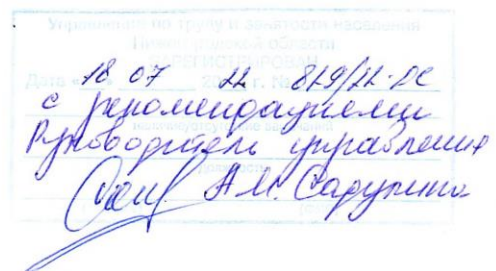 Управление по труду и занятости населения
области
ЗАРЕГИСТРИРОВАН
Дата «18» 07 2022 г. № 819/22-ДС
с рекомендациями
Руководитель управления
А.М.